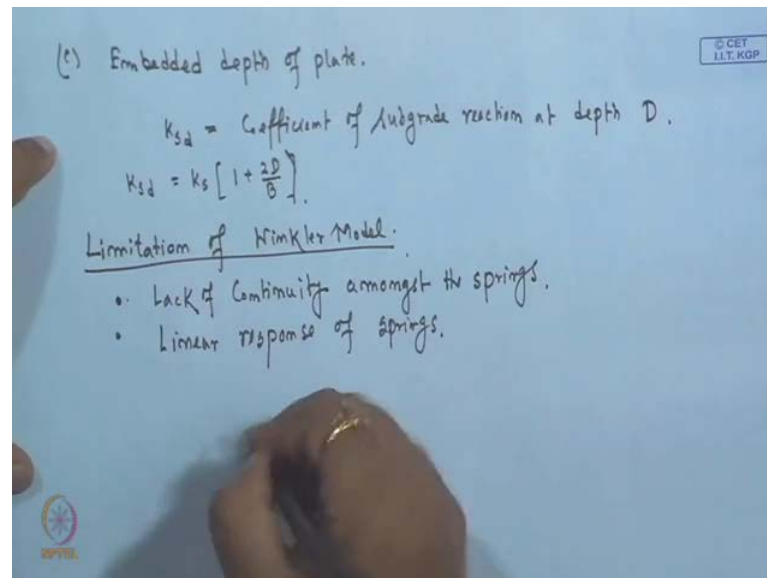 (c) Embedded depth of plate.
© CET
I.I.T. KGP
Ksd = Coefficient of subgrade reaction at depth D.
Ksd = Ks [1 + 2D/B].
Limitation of Winkler Model.
• Lack of Continuity amongst the springs.
• Linear response of springs.
NPTEL